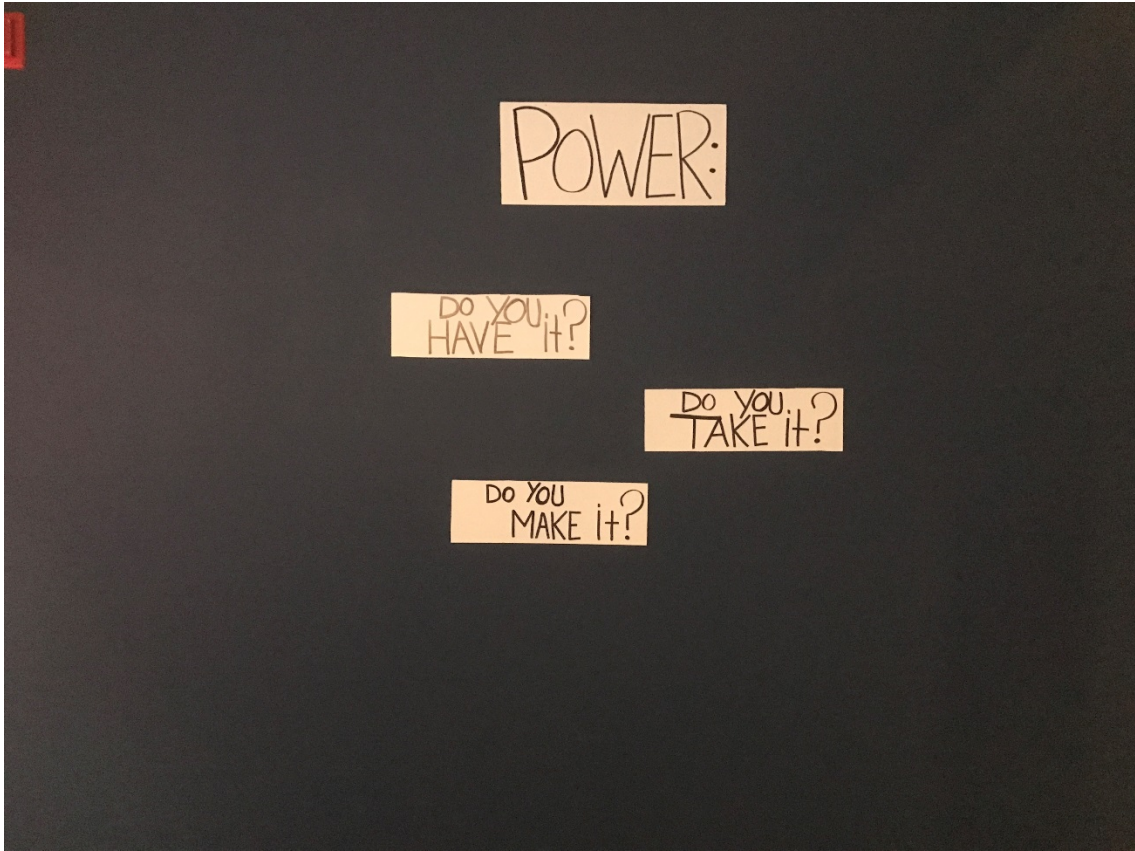 POWER:
DO YOU
HAVE it?
DO YOU
TAKE it?
DO YOU
MAKE it?